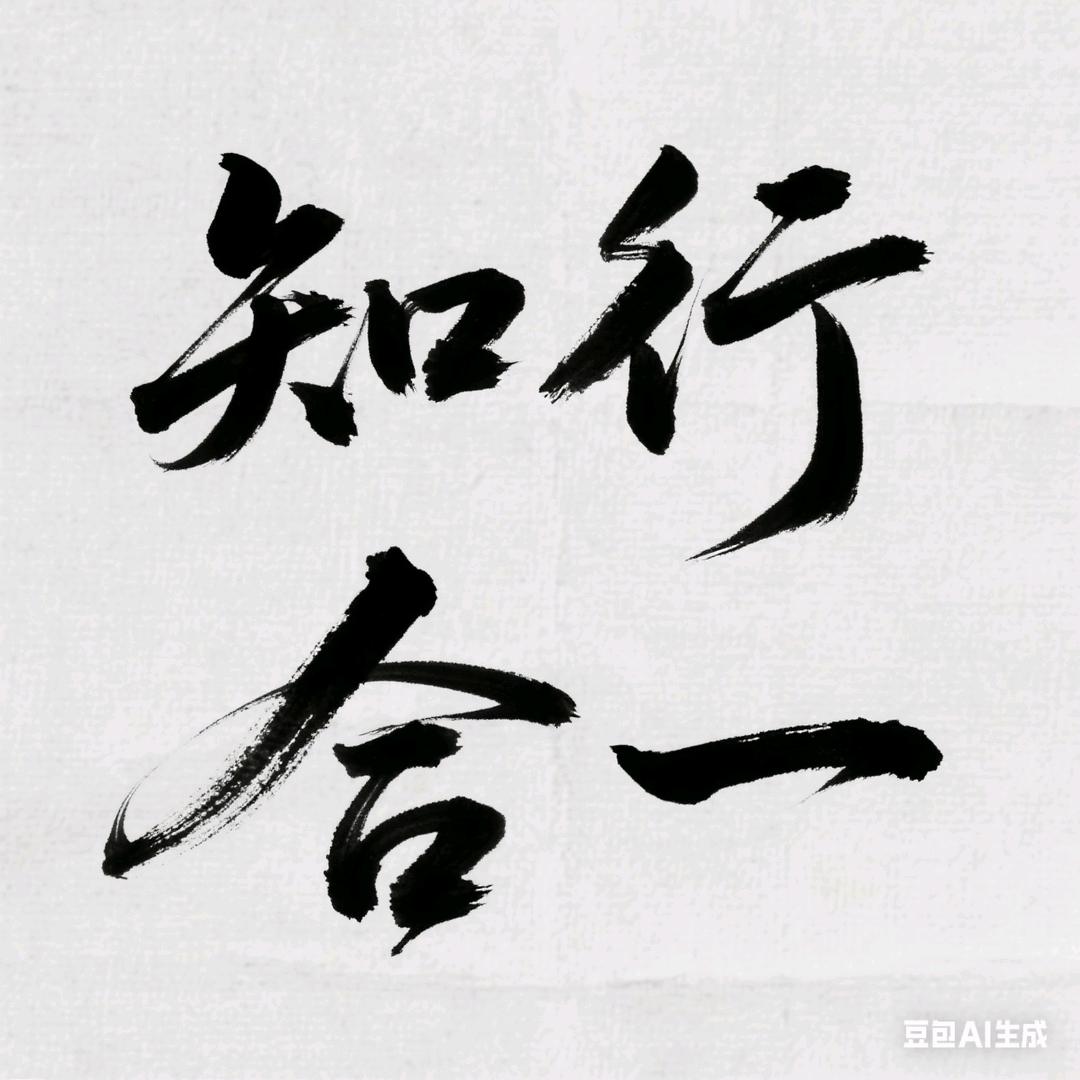 知行
合一
豆包AI生成